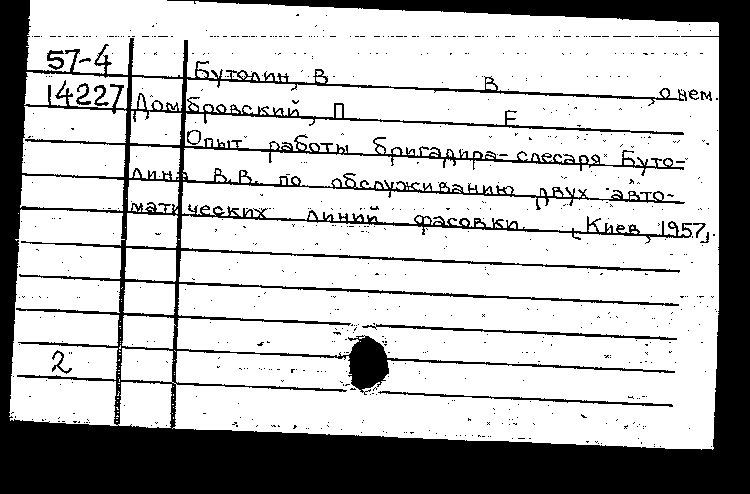 57-4 Бутолин, В В , о нем.
14227 Домбровский, П Е
Опыт работы бригадира-слесаря Буто-
лина В.В. по обслуживанию двух авто-
матических линий фасовки. [Киев, 1957].
2